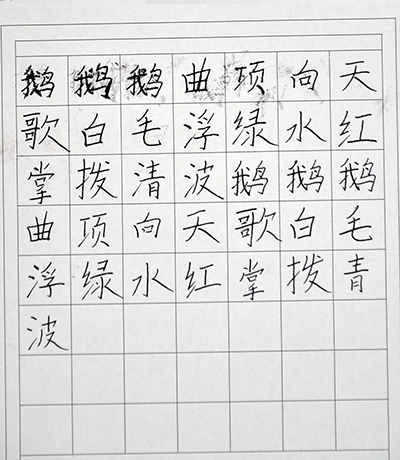 鹅鹅鹅曲项向天
歌白毛浮绿水红
掌拨清波鹅鹅鹅
曲项向天歌白毛
浮绿水红掌拨青
波